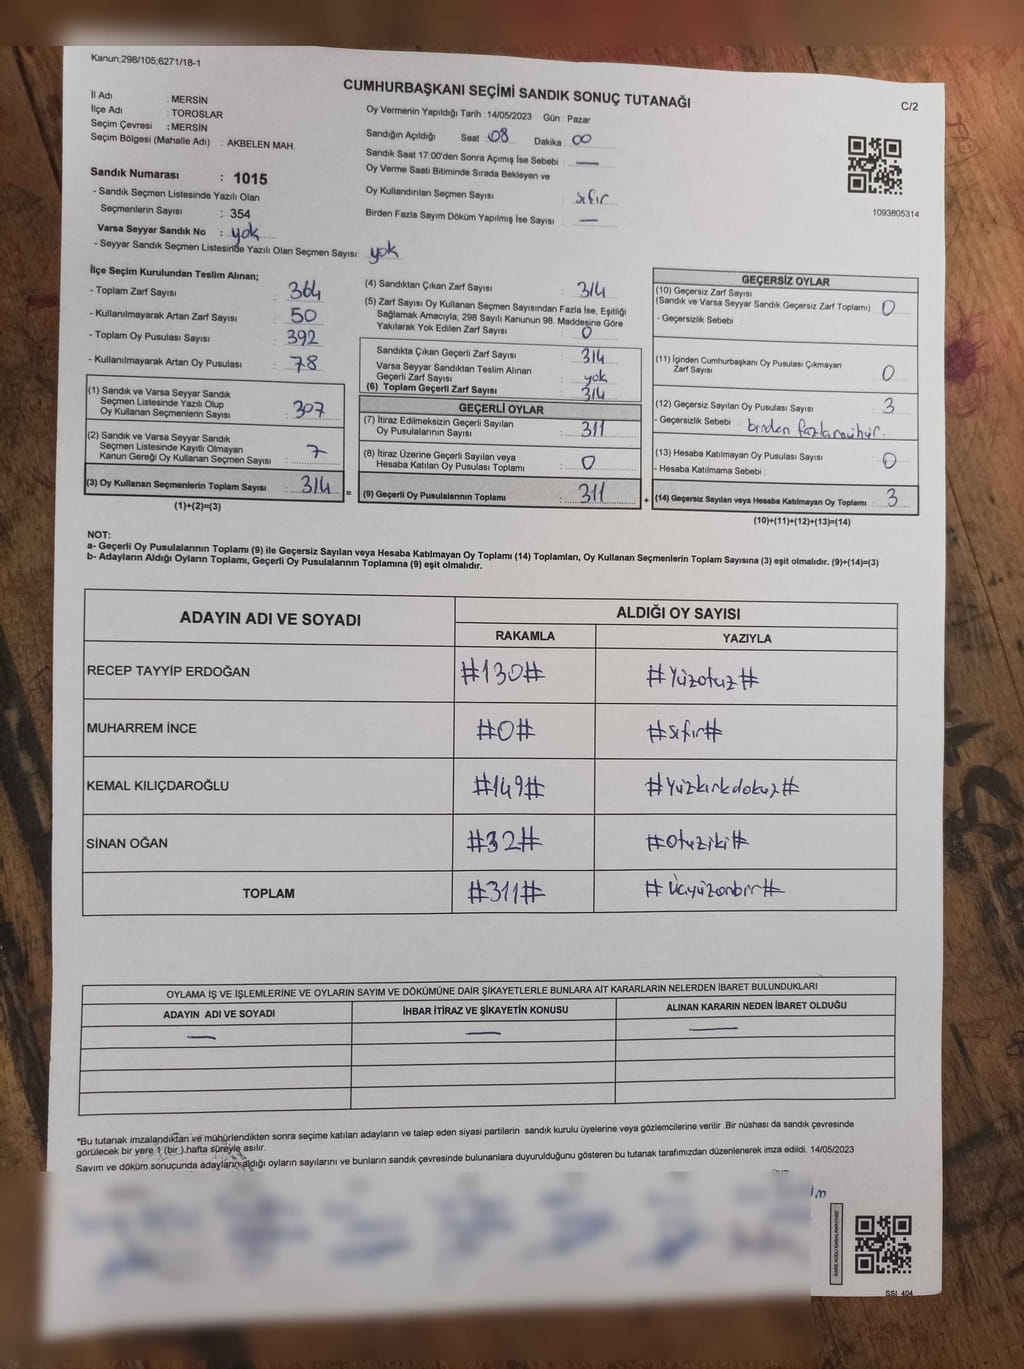 Kanun;298/105;6271/18-1
CUMHURBAŞKANI SEÇİMİ SANDIK SONUÇ TUTANAĞI
C/2
İl Adı : MERSİN
İlçe Adı : TOROSLAR
Seçim Çevresi : MERSİN
Seçim Bölgesi (Mahalle Adı) : AKBELEN MAH.
Oy Vermenin Yapıldığı Tarih : 14/05/2023 Gün : Pazar
Sandığın Açıldığı Saat : 08 Dakika : 00
Sandık Saat 17:00'den Sonra Açımış İse Sebebi : —
Oy Verme Saati Bitiminde Sırada Bekleyen ve
Oy Kullandırılan Seçmen Sayısı : sıfır
Birden Fazla Sayım Döküm Yapılmış İse Sayısı : —
1093805314
Sandık Numarası : 1015
- Sandık Seçmen Listesinde Yazılı Olan
Seçmenlerin Sayısı : 354
Varsa Seyyar Sandık No : yok
- Seyyar Sandık Seçmen Listesinde Yazılı Olan Seçmen Sayısı: yok
İlçe Seçim Kurulundan Teslim Alınan;
- Toplam Zarf Sayısı : 364
- Kullanılmayarak Artan Zarf Sayısı : 50
- Toplam Oy Pusulası Sayısı : 392
- Kullanılmayarak Artan Oy Pusulası : 78
(1) Sandık ve Varsa Seyyar Sandık
Seçmen Listesinde Yazılı Olup
Oy Kullanan Seçmenlerin Sayısı : 307
(2) Sandık ve Varsa Seyyar Sandık
Seçmen Listesinde Kayıtlı Olmayan
Kanun Gereği Oy Kullanan Seçmen Sayısı : 7
(3) Oy Kullanan Seçmenlerin Toplam Sayısı : 314 =
(1)+(2)=(3)
(4) Sandıktan Çıkan Zarf Sayısı : 314
(5) Zarf Sayısı Oy Kullanan Seçmen Sayısından Fazla İse, Eşitliği
Sağlamak Amacıyla; 298 Sayılı Kanunun 98. Maddesine Göre
Yakılarak Yok Edilen Zarf Sayısı : 0
Sandıkta Çıkan Geçerli Zarf Sayısı : 314
Varsa Seyyar Sandıktan Teslim Alınan
Geçerli Zarf Sayısı : yok
(6) Toplam Geçerli Zarf Sayısı : 314
GEÇERLİ OYLAR
(7) İtiraz Edilmeksizin Geçerli Sayılan
Oy Pusulalarının Sayısı : 311
(8) İtiraz Üzerine Geçerli Sayılan veya
Hesaba Katılan Oy Pusulası Toplamı : 0
(9) Geçerli Oy Pusulalarının Toplamı : 311 +
GEÇERSİZ OYLAR
(10) Geçersiz Zarf Sayısı
(Sandık ve Varsa Seyyar Sandık Geçersiz Zarf Toplamı) : 0
- Geçersizlik Sebebi :
(11) İçinden Cumhurbaşkanı Oy Pusulası Çıkmayan
Zarf Sayısı : 0
(12) Geçersiz Sayılan Oy Pusulası Sayısı : 3
- Geçersizlik Sebebi : birden fazla mühür.
(13) Hesaba Katılmayan Oy Pusulası Sayısı : 0
- Hesaba Katılmama Sebebi :
(14) Geçersiz Sayılan veya Hesaba Katılmayan Oy Toplamı : 3
(10)+(11)+(12)+(13)=(14)
NOT:
a- Geçerli Oy Pusulalarının Toplamı (9) ile Geçersiz Sayılan veya Hesaba Katılmayan Oy Toplamı (14) Toplamları, Oy Kullanan Seçmenlerin Toplam Sayısına (3) eşit olmalıdır. (9)+(14)=(3)
b- Adayların Aldığı Oyların Toplamı, Geçerli Oy Pusulalarının Toplamına (9) eşit olmalıdır.
ADAYIN ADI VE SOYADI
ALDIĞI OY SAYISI
RAKAMLA YAZIYLA
RECEP TAYYİP ERDOĞAN #130# #Yüzotuz#
MUHARREM İNCE #0# #sıfır#
KEMAL KILIÇDAROĞLU #149# #Yüzkırkdokuz#
SİNAN OĞAN #32# #Otuziki#
TOPLAM #311# #Üçyüzonbir#
OYLAMA İŞ VE İŞLEMLERİNE VE OYLARIN SAYIM VE DÖKÜMÜNE DAİR ŞİKAYETLERLE BUNLARA AİT KARARLARIN NELERDEN İBARET BULUNDUKLARI
ADAYIN ADI VE SOYADI İHBAR İTİRAZ VE ŞİKAYETİN KONUSU ALINAN KARARIN NEDEN İBARET OLDUĞU
— — —
*Bu tutanak imzalandıktan ve mühürlendikten sonra seçime katılan adayların ve talep eden siyasi partilerin sandık kurulu üyelerine veya gözlemcilerine verilir .Bir nüshası da sandık çevresinde
görülecek bir yere 1 (bir ) hafta süreyle asılır.
Sayım ve döküm sonuçunda adayların aldığı oyların sayılarını ve bunların sandık çevresinde bulunanlara duyurulduğunu gösteren bu tutanak tarafımızdan düzenlenerek imza edildi. 14/05/2023
SSI_404